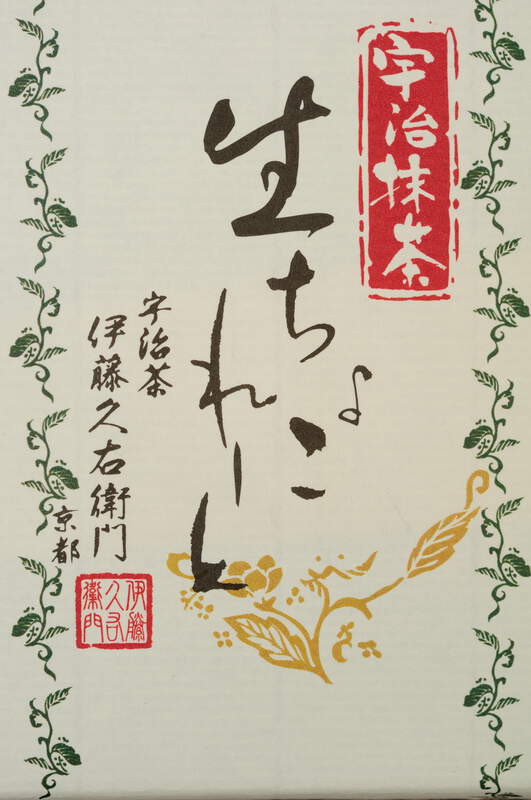 宇治抹茶
生ちょこ
れーと
宇治茶
伊藤久右衛門
京都
伊藤
久右
衛門